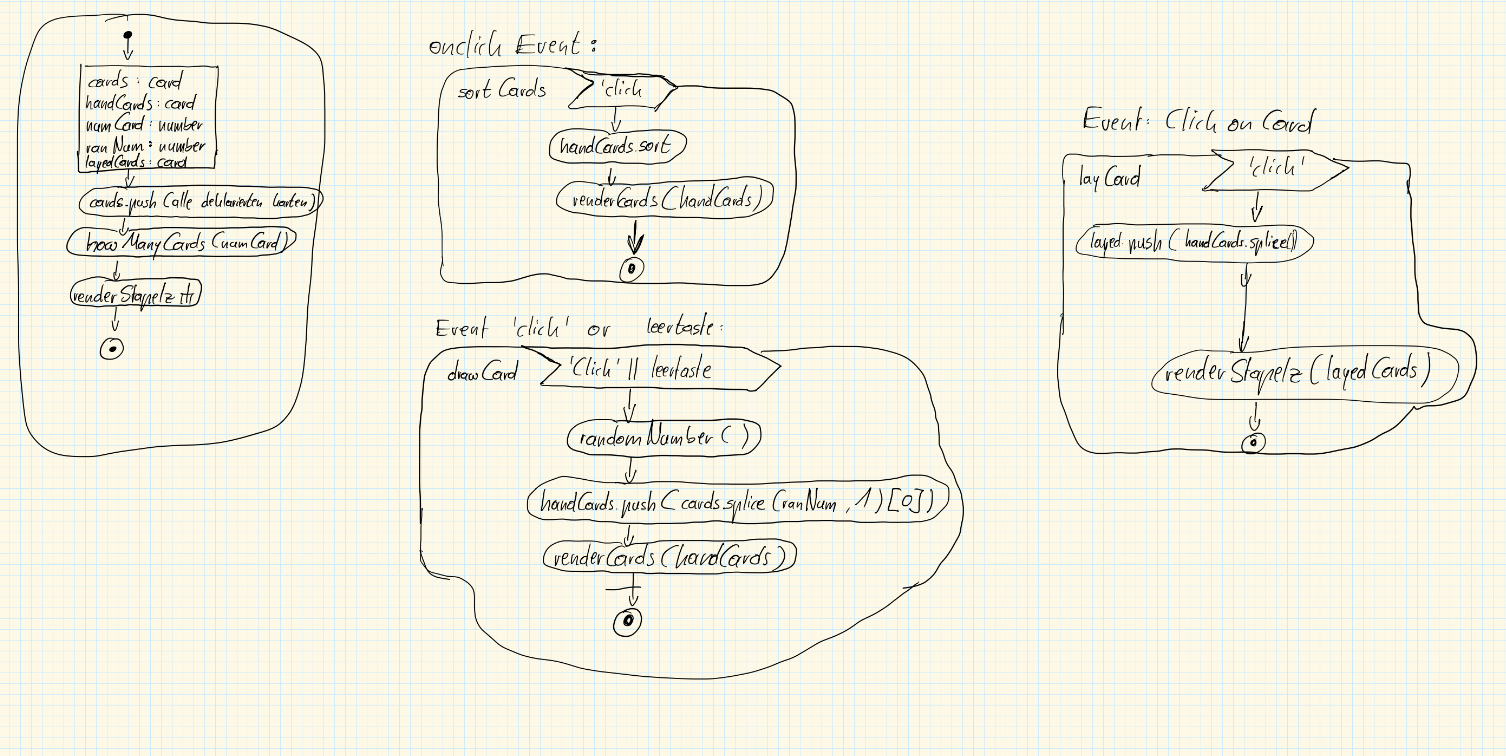 cards : card
handCards : card
numCard : number
ran Num : number
layedCards : card
cards.push (alle deklarierten karten)
how Many Cards (numCard)
render Stapelz
onclick Event :
sort Cards
'click
handCards.sort
renderCards (handCards)
Event 'click' or leertaste :
draw Card
'Click' || leertaste
random Number ( )
handCards.push ( cards.splice (ranNum , 1) [0])
renderCards (handCards)
Event: Click on Card
lay Card
'click'
layed.push ( handCards.splice())
render Stapelz ( layed Cards )